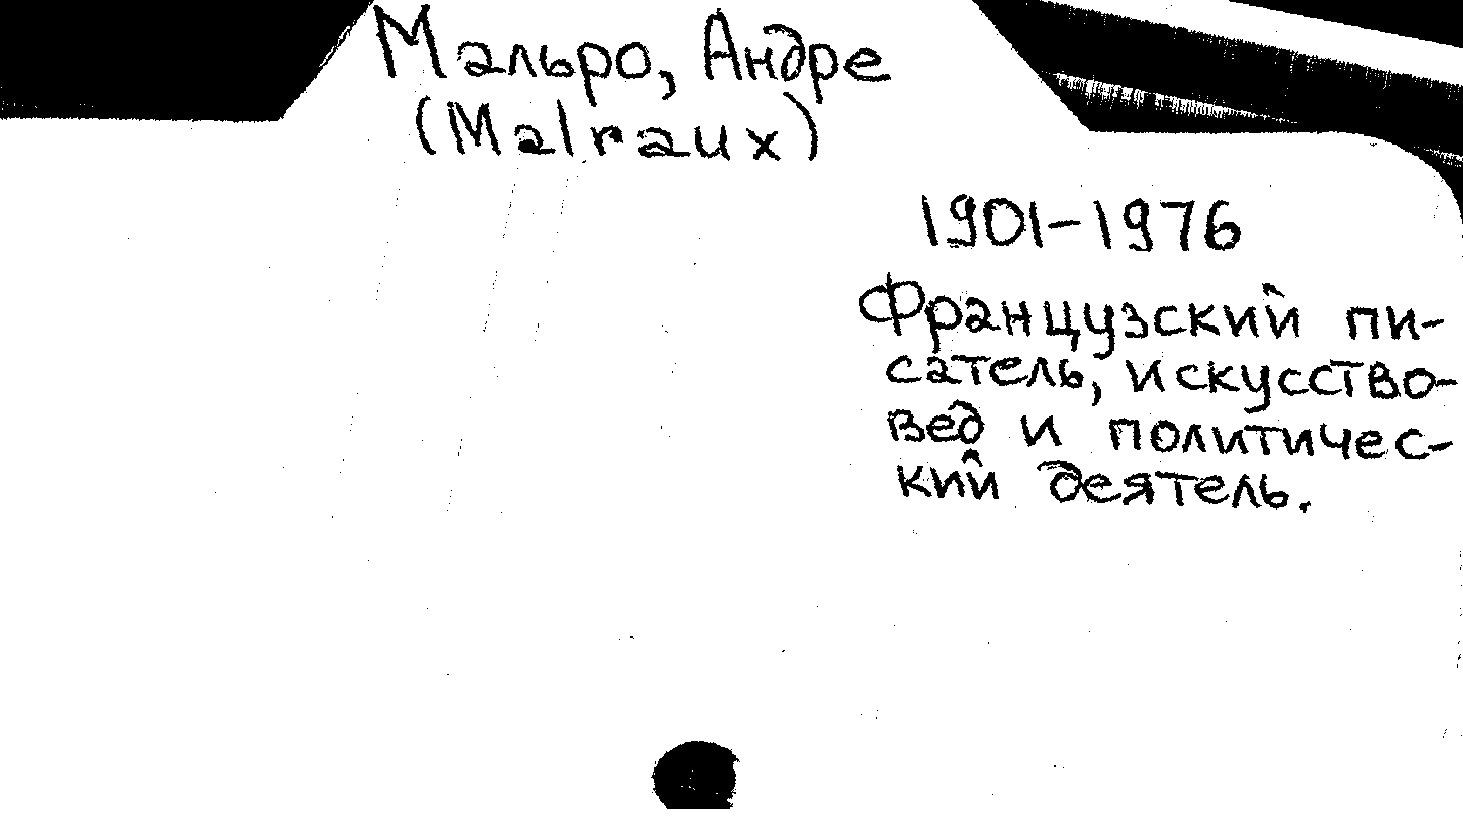 Мальро, Андре
(Malraux)
1901-1976
Французский пи-
сатель, искусство-
вед и политичес-
кий деятель.